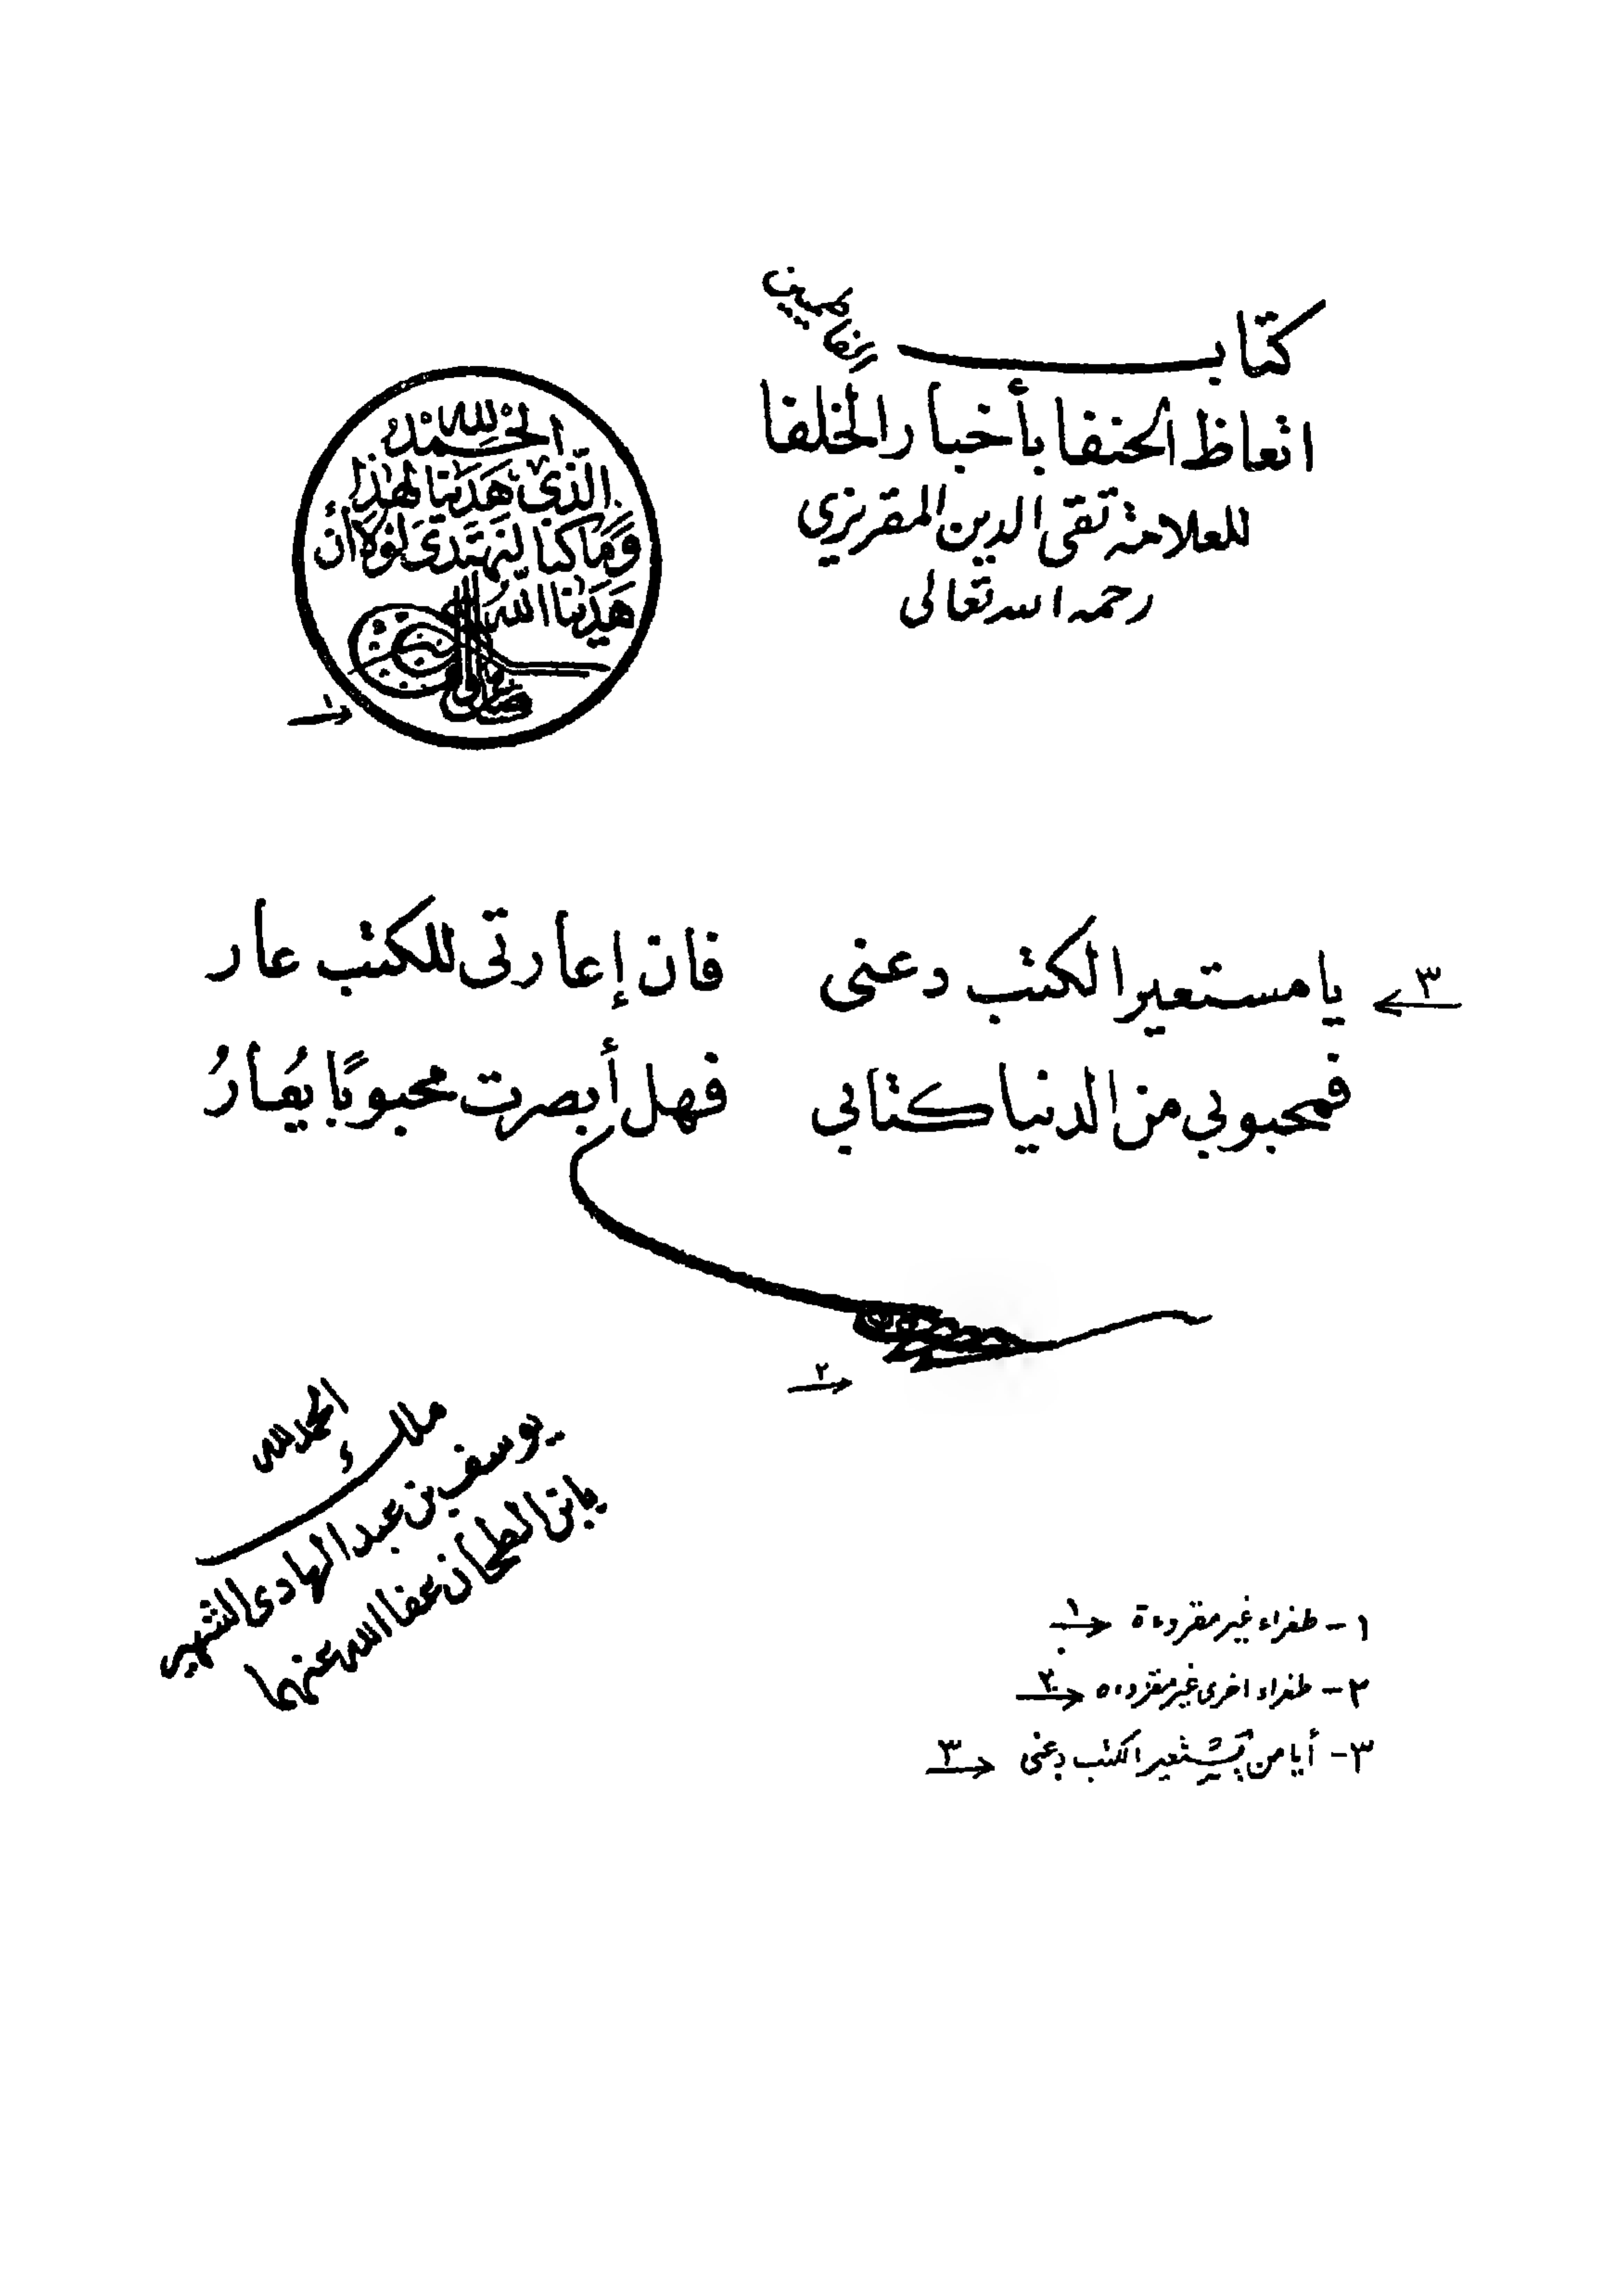 كتاب
اتعاظ الحنفا بأخبار الخلفا
للعلامة تقى الدين المقريزي
رحمه الله تعالى
الحَمْدُ لِلّه
الَّذى هَدَينا لهذا
وَمَا كنا لنهتَدىَ لَوْلَا أن
هَدَينا اللّه
١
٣ يا مستعير الكتب دعنى فان إعارتى للكتب عار
فمحبوبي من الدنيا كتابي فهل أبصرت محبوبًا يُعَارُ
٢
الحمد لله
ملك
يوسف بن عبد الهادى الشهير
بابن الطحان عفا الله عنهما
١ - طغراء غير مقروءة ١
٢ - طغراء اخرى غير مقروءه ٢
٣ - أيا من يَسْتعير الكتب دعنى ٣